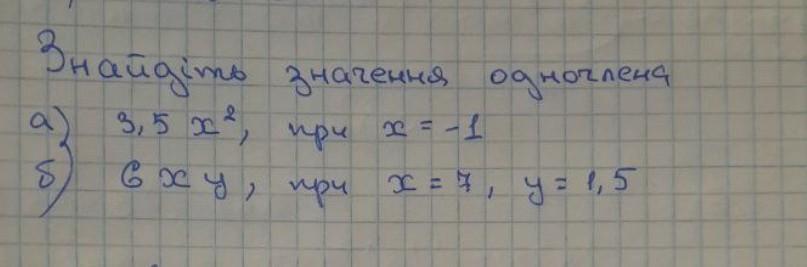 Знайдіть значення одночлена
а) 3,5 x², при x = -1
б) 6 x y, при x = 7, y = 1,5